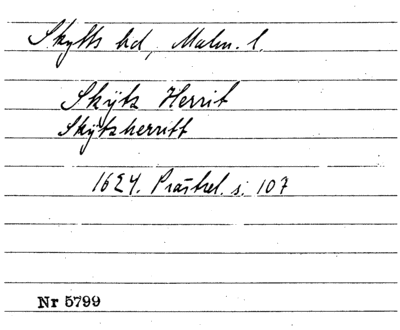 Skytts hd, Malm. l.
Skÿtz Herrit
Skÿtzherritt
1624. Prästrel. s. 107
Nr 5799